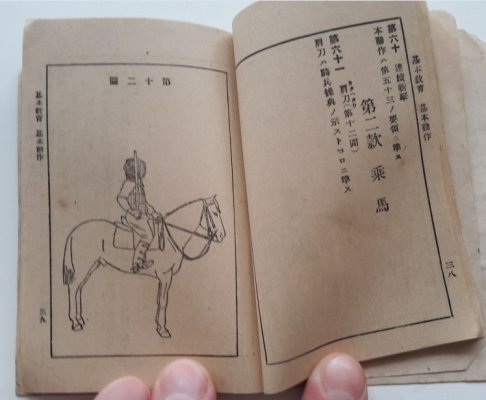 基本教育 基本動作
三八
第六十
本動作ハ第五十三ノ要領ニ準ス
第二款 乘馬
第六十一 肩刀(第十二圖)
肩刀ハ騎兵操典ノ示ストコロニ準ス
第十二圖
基本教育 基本動作
三九